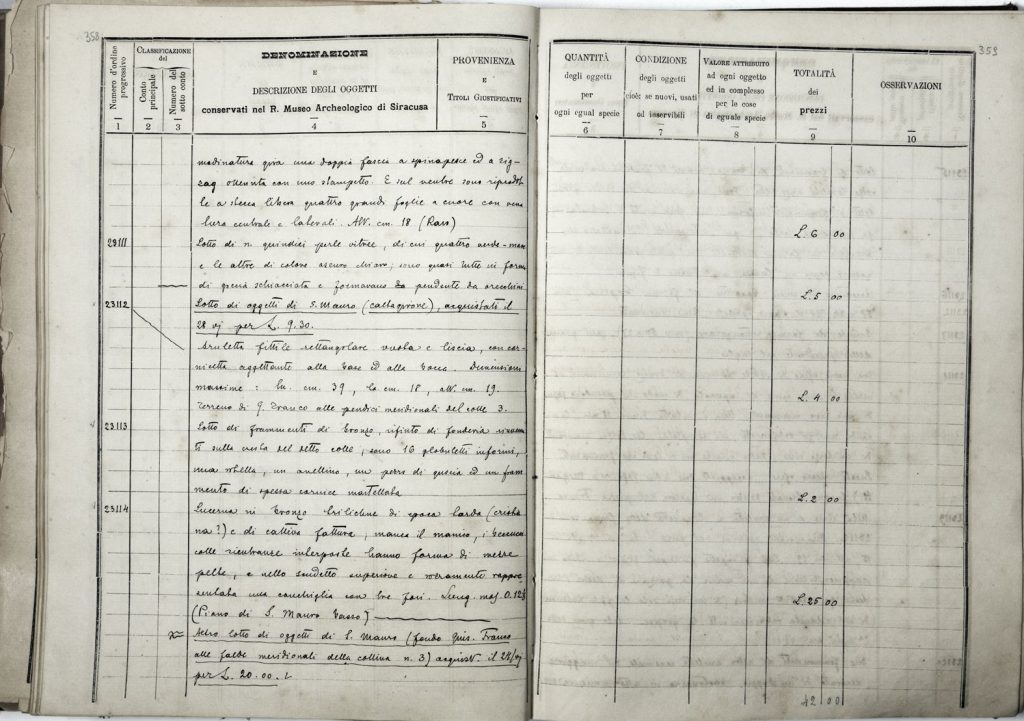 358
Numero d'ordine progressivo
CLASSIFICAZIONE del
Conto principale
Numero del sotto conto
DENOMINAZIONE
E
DESCRIZIONE DEGLI OGGETTI
conservati nel R. Museo Archeologico di Siracusa
PROVENIENZA
E
TITOLI GIUSTIFICATIVI
1 2 3 4 5
modinatura gira una doppia fascia a spinapesce ed a zig-
zag ottenuta con uno stampetto. E sul ventre sono riprodot
te a stecca libera quattro grandi foglie a cuore con vena
tura centrale e laterali. Alt. cm. 18 (Raro)
23111 Lotto di n. quindici perle vitree, di cui quattro verde-mare
e le altre di colore oscuro chiaro; sono quasi tutte in forma
di pera schiacciata e formavano pendente da orecchini
23112 Lotto di oggetti di S. Mauro (Caltagirone), acquistati il
28 vj per L. 9.30.
Aruletta fittile rettangolare vuota e liscia, con cor-
nicetta aggettante alla base ed alla bocca. Dimensioni
massime: lu. cm. 39, la cm. 18, alt. cm. 19.
Terreno di G. Franco alle pendici meridionali del colle 3.
23113 Lotto di frammenti di bronzo, rifiuto di fonderia rinvenu
ti sulla vetta del detto colle, sono 16 globuletti informi,
una rotella, un anellino, un pezzo di guscia ed un fram
mento di spessa cornice martellata
23114 Lucerna in bronzo bilichne di epoca tarda (cristia
na?) e di cattiva fattura, manca il manico, i beccucci
colle rientranze interposte hanno forma di mezze
pelte, e nello scudetto superiore è rappre
sentata una conchiglia con tre fori. Lung. mas. 0.12
(Piano di S. Mauro basso)
Altro lotto di oggetti di S. Mauro (fondo Gius. Franco
alle falde meridionali della collina n. 3) acquist. il
per L. 20.00.
359
QUANTITÀ
degli oggetti
per
ogni egual specie
CONDIZIONE
degli oggetti
cioè: se nuovi, usati
od inservibili
VALORE ATTRIBUITO
ad ogni oggetto
ed in complesso
per le cose
di eguale specie
TOTALITÀ
dei
prezzi
OSSERVAZIONI
6 7 8 9 10
L. 6 00
L. 5 00
L. 4 00
L. 2 00
L. 25 00
42 00